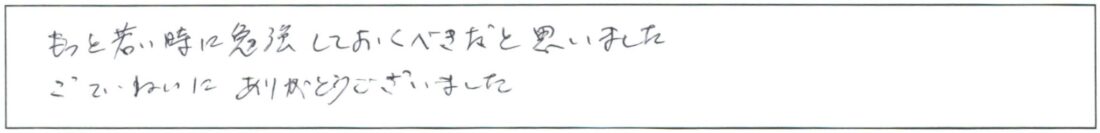 もっと若い時に勉強しておくべきだと思いました
ごていねいに ありがとうございました